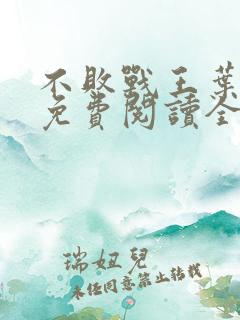 不敗戰王葉
免費閱讀全
瑞妞兒
未经同意禁止转载